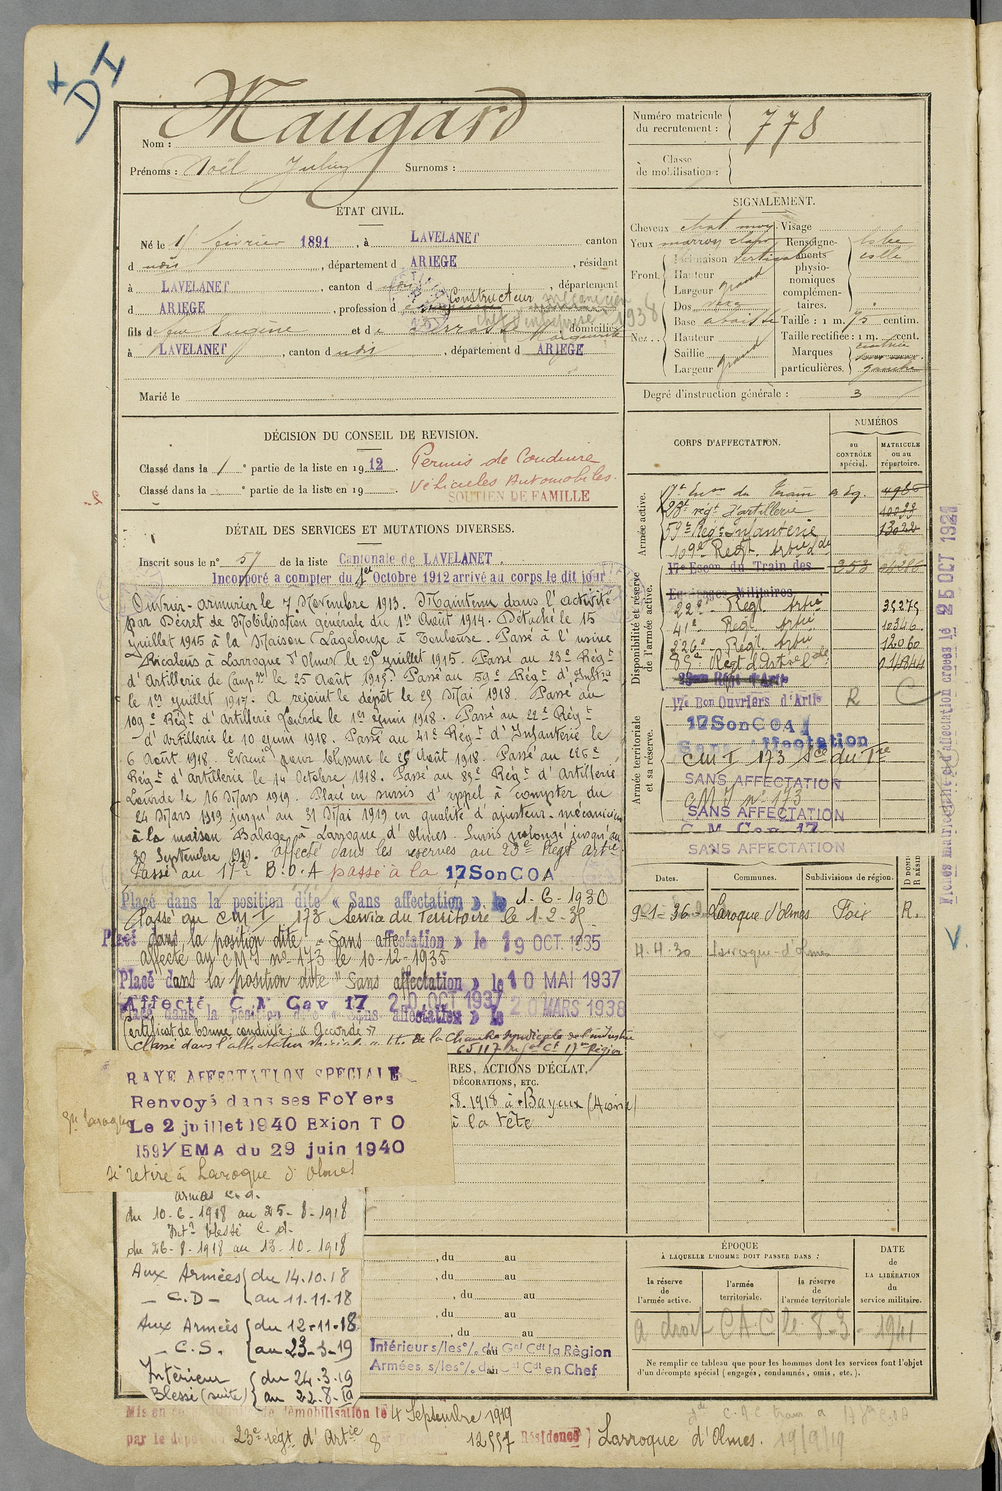 DI
Maugard
Nom :
Prénoms : Noël Julien Surnoms :
Numéro matricule du recrutement : 778
Classe de mobilisation :
ÉTAT CIVIL.
Né le 1er février 1891, à LAVELANET canton
d udis, département d ARIEGE, résidant
à LAVELANET, canton d udis, département
d ARIEGE, profession d Constructeur mécanicien
chef d'entreprise 1938
fils de feu Eugène et de domiciliés
Marguerite
à LAVELANET, canton d udis, département d ARIEGE
Marié le
SIGNALEMENT.
Cheveux chat moy Visage
Yeux marron clair Renseignements physionomiques complémentaires.
Front. Inclinaison verticale
Hauteur
Largeur grand
Nez... Dos
Base abaissée Taille : 1 m. 75 centim.
Hauteur Taille rectifiée : 1 m. cent.
Saillie Marques particulières.
Largeur grand gauche
Degré d'instruction générale : 3
DÉCISION DU CONSEIL DE REVISION.
Classé dans la 1e partie de la liste en 1912. Permis de Conduire
Classé dans la e partie de la liste en 19 Véhicules Automobiles.
SOUTIEN DE FAMILLE
DÉTAIL DES SERVICES ET MUTATIONS DIVERSES.
Inscrit sous le n° 57 de la liste Cantonale de LAVELANET.
Incorporé a compter du 1er Octobre 1912 arrivé au corps le dit jour
Ouvrier-armurier le 7 Novembre 1913. Maintenu dans l'activité
par Décret de Mobilisation générale du 1er Août 1914. Détaché le 15
juillet 1915 à la Maison Lagelouze à Toulouse. Passé à l'usine
Ricalens à Larroque d'Olmes le 29 juillet 1915. Passé au 23e Régt
d'Artillerie de Campne le 25 Août 1915. Passé au 59e Régt d'Inftrie
le 1er juillet 1917. A rejoint le dépôt le 29 Mai 1918. Passé au
109e Régt d'Artillerie Lourde le 1er juin 1918. Passé au 22e Régt
d'Artillerie le 10 juin 1918. Passé au 41e Régt d'Infanterie le
6 Août 1918. Evacué pour blessure le 25 Août 1918. Passé au 226e
Régt d'artillerie le 14 Octobre 1918. Passé au 83e Régt d'Artillerie
Lourde le 16 Mars 1919. Placé en sursis d'appel à compter du
24 Mars 1919 jusqu'au 31 Mai 1919 en qualité d'ajusteur-mécanicien
à la maison Balaga à Larroque d'olmes. Sursis prolongé jusqu'au
30 Septembre 1919. affecté dans les réserves au 23e Régt artie
Passé au 17e B.O.A passé à la 17SonCOA
Placé dans la position dite « Sans affectation » le 1-6-1930
Passé au CMI 173 Service du Territoire le 1-2-35
Placé dans la position dite « Sans affectation » le 19 OCT 1935
affecté au CMI n° 173 le 10-12-1935
Placé dans la position dite « Sans affectation » le 10 MAI 1937
Affecté C.M Cav 17 20 OCT 1937
Placé dans la position dite « Sans affectation » le 20 MARS 1938
Certificat de bonne conduite : "Accordé"
Classé dans l'affectation spéciale au titre de la Chambre Syndicale de l'industrie
CORPS D'AFFECTATION.
NUMÉROS
au CONTRÔLE spécial.
MATRICULE ou au répertoire.
Armée active.
17e Eson du Train
23e régt d'artillerie
59e Régt Infanterie
109e Régt. Artie lde
Disponibilité et réserve de l'armée active.
17e Escon du Train des 353
Equipages Militaires
22e Régt Artie 35275
41e Régt Artie 10346
226e Régt Artie 12060
83e Régt d'Artie lde
23em Régt d'Artie
Armée territoriale et sa réserve.
17e Bon Ouvriers d'Artie R C
17SonCOA
Sans Affectation
CMI 173 Sce du Tre
SANS AFFECTATION
CMI n° 173
SANS AFFECTATION
C M Cav 17
SANS AFFECTATION
Fiches matricule et d'affectation créées le 25 OCT 1921
Dates. Communes. Subdivisions de région.
9-1-26 Laroque d'Olmes Foix R.
4.4.30 Laroque-d'olmes
RAYE AFFECTATION SPECIALE
Renvoyé dans ses FoYers
Le 2 juillet 1940 Exion T O
159 1/EMA du 29 juin 1940
se retire à Laroque d'Olmes
RES, ACTIONS D'ÉCLAT,
DÉCORATIONS, ETC.
.8.1918 à Bayeux (Aisne)
à la tête
armées C.d.
du 10-6-1918 au 25-8-1918
Intr blessé C.d.
du 26-8-1918 au 13-10-1918
Aux Armées du 14.10.18
C.D- au 11.11.18
Aux Armées du 12-11-18
C.S. au 23-3-19
Intérieur du 24.3.19
Blessé (suite) au 22.8.19
, du au
, du au
, du au
, du au
, du au
Intérieur s/les o/. du Gal Cdt la Région
Armées s/les o/. du Gal Cdt en Chef
ÉPOQUE
À LAQUELLE L'HOMME DOIT PASSER DANS :
la réserve de l'armée active.
l'armée territoriale.
la réserve de l'armée territoriale
DATE de LA LIBÉRATION du service militaire.
a droit CAC le 8-3-1941
Ne remplir ce tableau que pour les hommes dont les services font l'objet
d'un décompte spécial (engagés, condamnés, omis, etc.).
Mis en congé de démobilisation le 4 Septembre 1919
par le dépôt du 23e régt d'Artie 8 12557 Résidence Larroque d'Olmes. 19/9/19